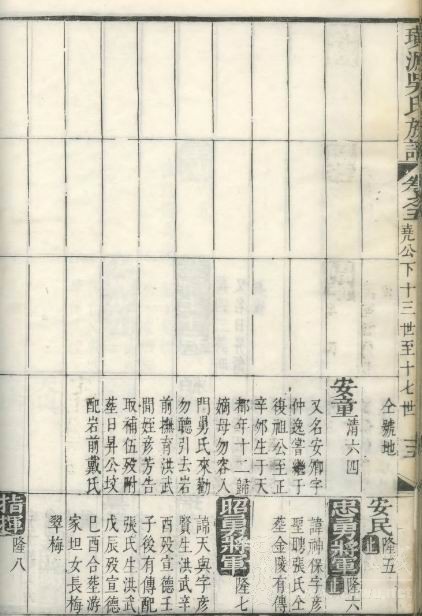 璜源吳氏族譜
卷之 堯公下十三世至十七世
仝號地
安童 清六四
又名安卿字
仲逸嘗繼于
復祖公至正
辛卯生于天
都年十二歸
嫡母勿容入
門舅氏來勸
勿聽引去岩
前撫育洪武
間姪彦芳告
取補伍歿附
塟日昇公坟
配岩前戴氏
安民 正 隆五
忠勇將軍 正 隆六
諱神保字彦
聖聘張氏仝
塟金陵有傳
昭勇將軍 隆七
諱天與字彦
賢生洪武辛
酉歿宣德王
子後有傳配
張氏生洪武
戊辰歿宣德
巳酉合塟游
家坦女長梅
翠梅
指揮 隆八